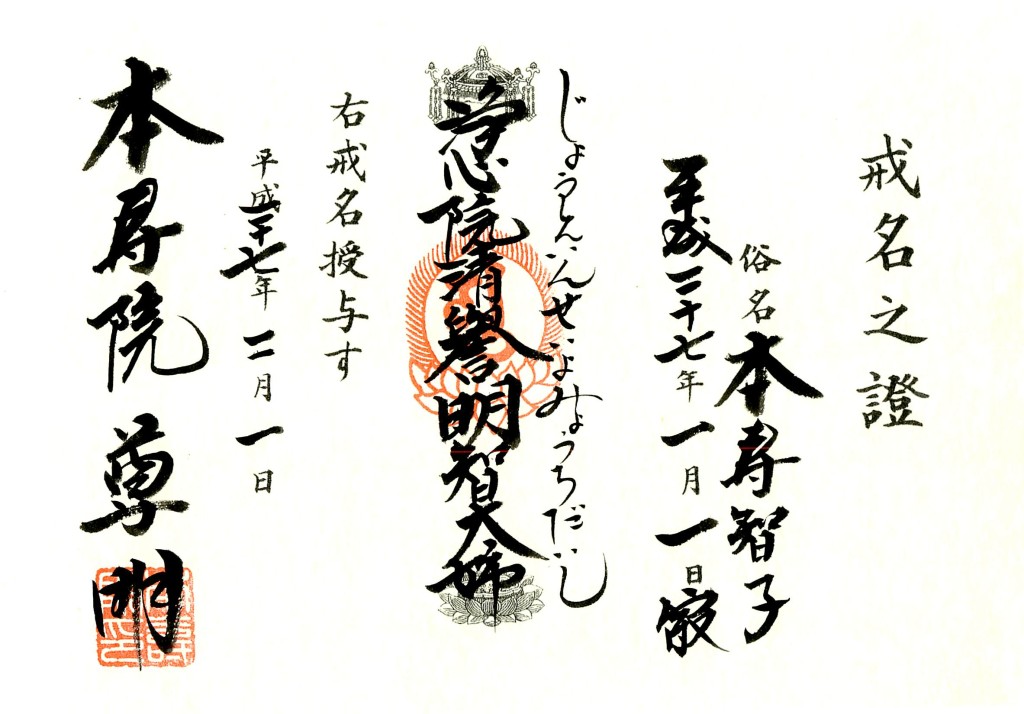 戒名之證
俗名 本寿智子
平成二十七年一月一日寂
じょうしんいんせいよみょうちだいし
浄心院清譽明智大姉
右戒名授与す
平成二十七年二月一日
本寿院 尊明